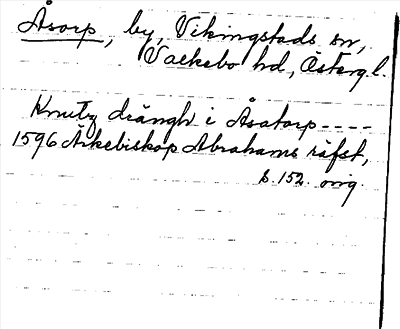 Åsorp, by, Vikingstads sn,
Valkebo hd, Österg. l.
Knutz drängh i Åsatorp ----
1596 Ärkebiskop Abrahams räfst,
s. 152. orig.